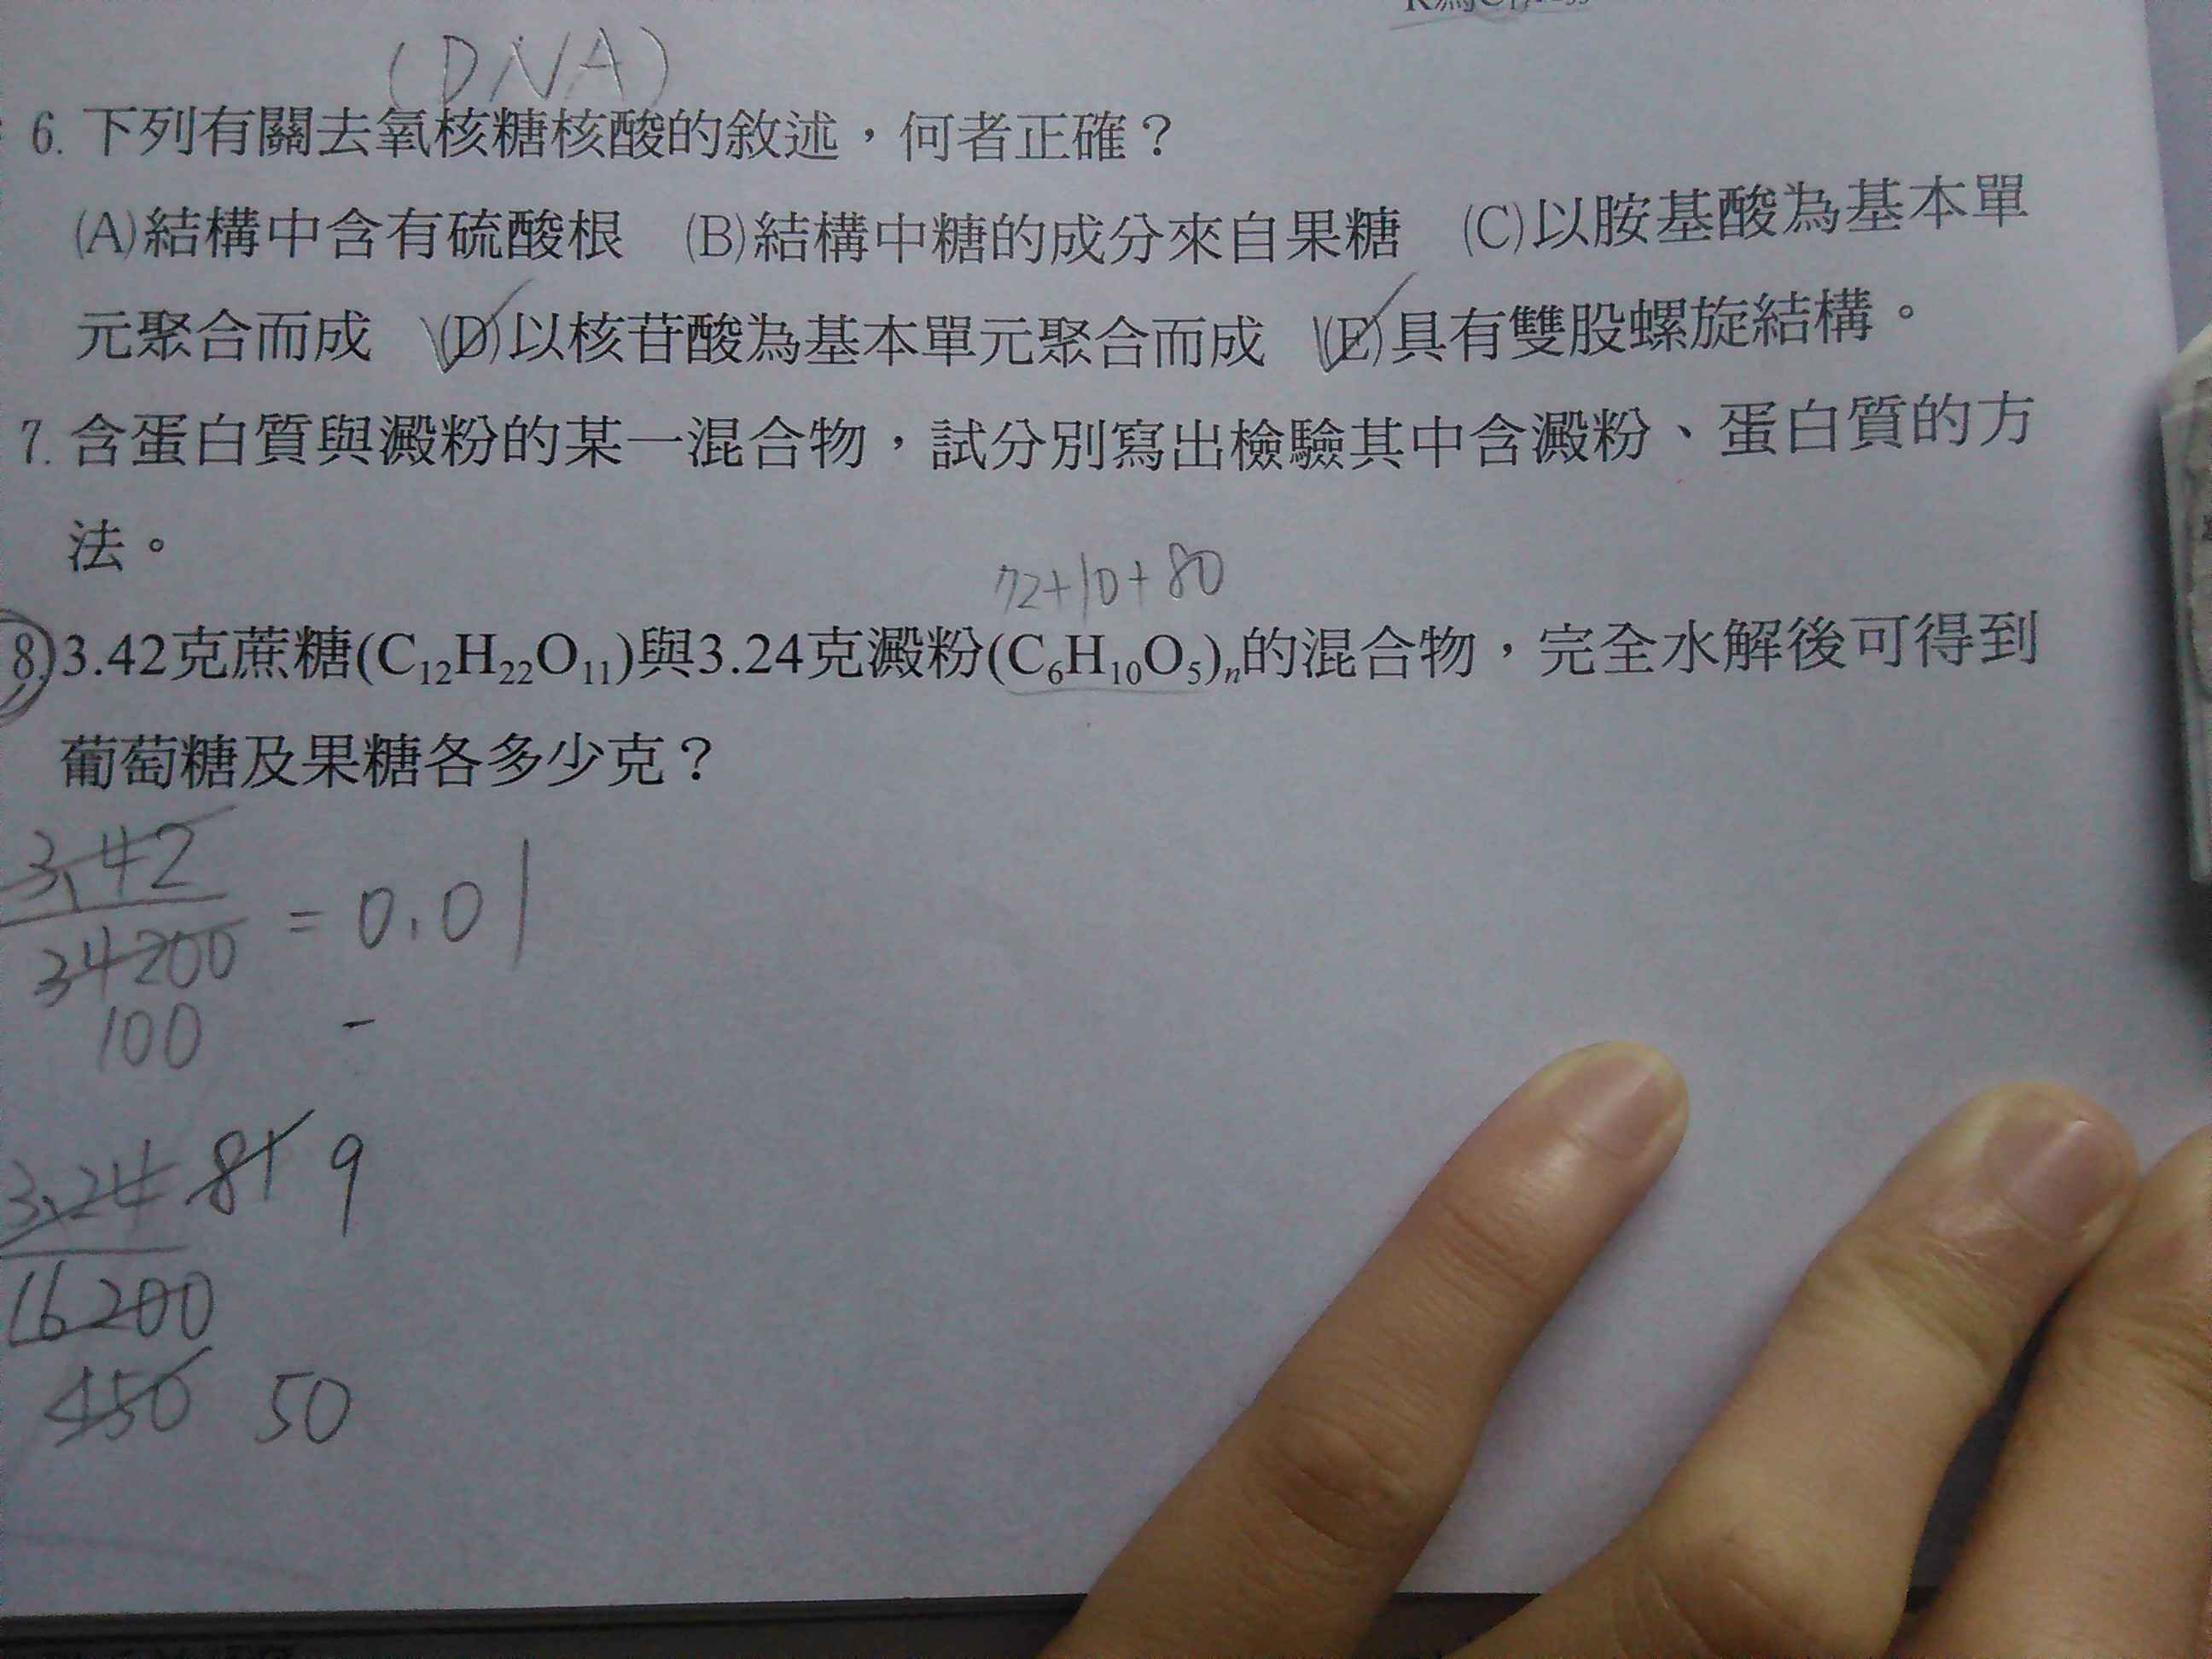 (DNA)
6. 下列有關去氧核糖核酸的敘述，何者正確？
(A)結構中含有硫酸根 (B)結構中糖的成分來自果糖 (C)以胺基酸為基本單
元聚合而成 (D)以核苷酸為基本單元聚合而成 (E)具有雙股螺旋結構。
7. 含蛋白質與澱粉的某一混合物，試分別寫出檢驗其中含澱粉、蛋白質的方
法。
72+10+80
8. 3.42克蔗糖(C₁₂H₂₂O₁₁)與3.24克澱粉(C₆H₁₀O₅)ₙ的混合物，完全水解後可得到
葡萄糖及果糖各多少克？
3.42
34200 = 0.01
100 -
3.24 81 9
16200
450 50